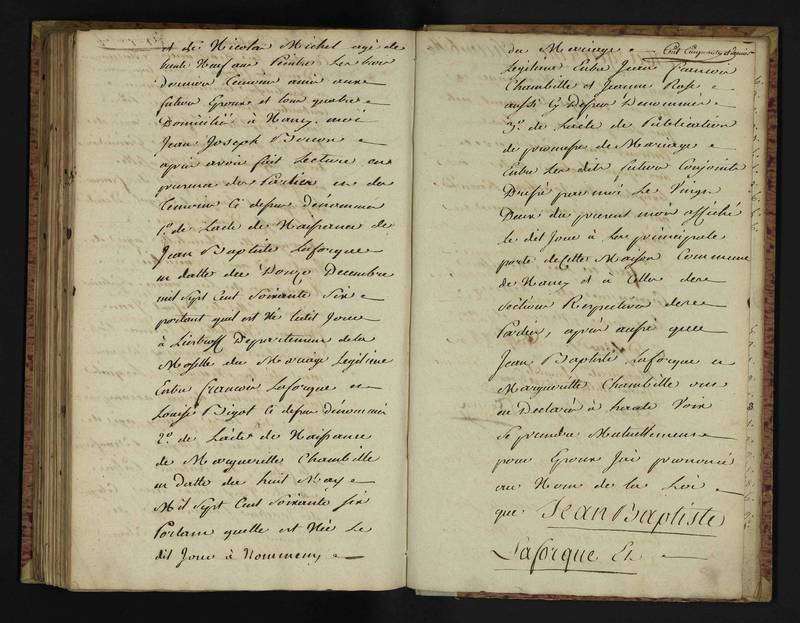 et de Nicolas Michel agé de
trente Neuf ans Peintre Les trois
derniers temoins amis aux
futurs Epoux et tous quatre
Domiciliés à Nancy. moi
Jean Joseph Brison
après avoir fait Lecture en
presence des Parties et des
Temoins Ci dessus dénommés
1º. de L'acte de Naissance de
Jean Baptiste Laforgue
en datte du Douze Decembre
mil Sept Cent Soixante Six
portant quil est Né ledit Jour
à Departement de la
Moselle du Mariage Legitime
Entre françois Laforgue et
Louise Bigot Ci dessus dénommés
2º. de L'acte de Naissance
de Marguerite Chambille
en datte du huit May
Mil Sept Cent Soixante Six
Portant quelle est Née Le
dit Jour à Nommeny
du Mariage
Legitime Entre Jean francois
Chambille et Jeanne Rose
aussi Ci dessus Denommés
3º. de L'acte de Publication
de promesse de Mariage
Entre Les dits futurs Conjoints
Dressé par moi Le Vingt
Deux du present mois affiché
le dit Jour à La principale
porte de cette Maison Commune
de Nancy et à Celles des
Sections Respectives des
Parties, après aussi que
Jean Baptiste Laforgue et
Marguerite Chambille ont
eu Declaré à haute Voix
Se prendre Mutuellement
pour Epoux J'ai prononcé
au Nom de la Loi
que Jean Baptiste
Laforgue Et